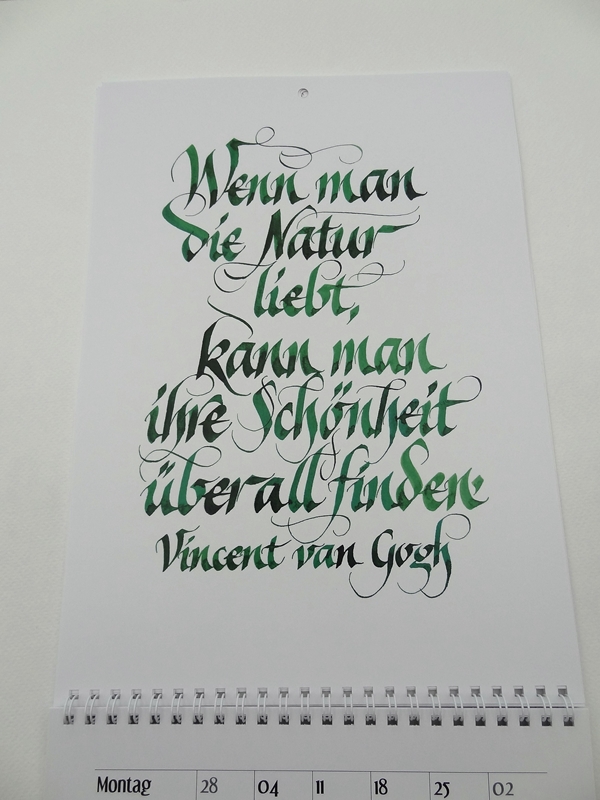 Wenn man
die Natur
liebt,
kann man
ihre Schönheit
überall finden.
Vincent van Gogh
Montag 28 04 11 18 25 02